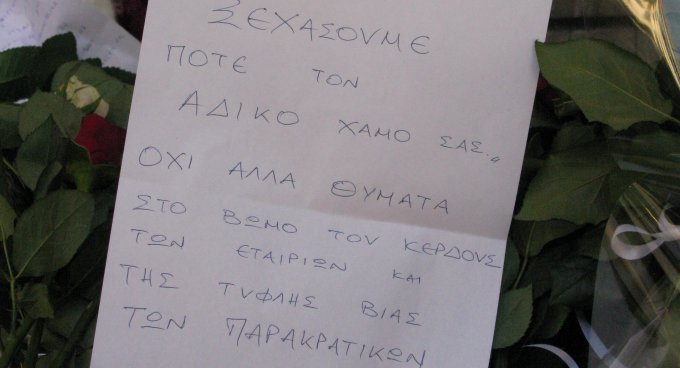 ΞΕΧΑΣΟΥΜΕ
ΠΟΤΕ ΤΟΝ
ΑΔΙΚΟ ΧΑΜΟ ΣΑΣ..,,
ΟΧΙ ΑΛΛΑ ΘΥΜΑΤΑ
ΣΤΟ ΒΩΜΟ ΤΟΥ ΚΕΡΔΟΥΣ
ΤΩΝ ΕΤΑΙΡΙΩΝ ΚΑΙ
ΤΗΣ ΤΥΦΛΗΣ ΒΙΑΣ
ΤΩΝ ΠΑΡΑΚΡΑΤΙΚΩΝ